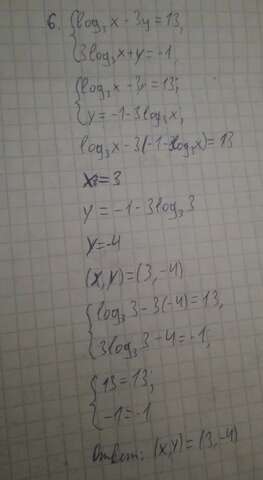 6. {log₃x - 3y = 13,
3log₃x + y = -1,
{log₃x - 3y = 13;
y = -1 - 3log₃x,
log₃x - 3(-1 - 3log₃x) = 13
x = 3
y = -1 - 3log₃3
y = -4
(x, y) = (3, -4)
{log₃3 - 3(-4) = 13,
3log₃3 - 4 = -1;
{13 = 13;
-1 = -1
Ответ: (x, y) = (3, -4)